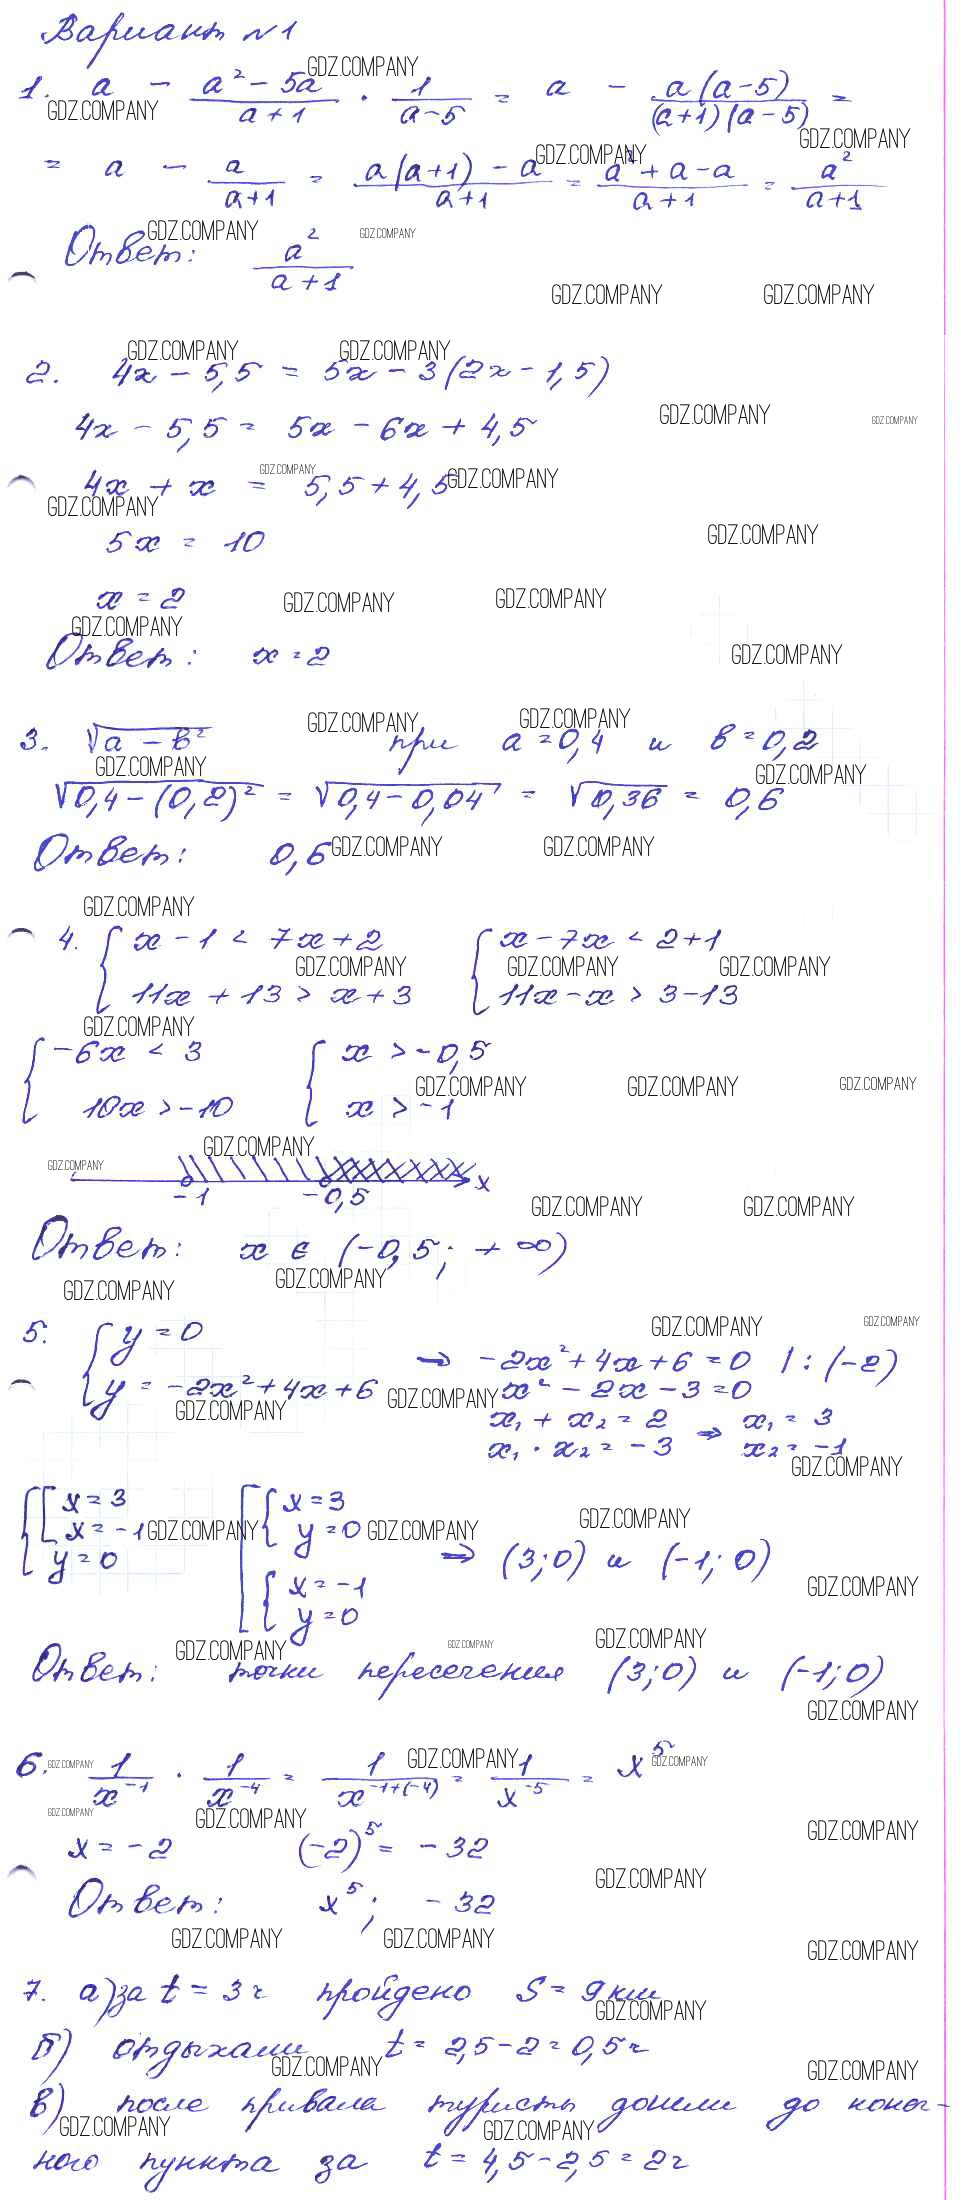 Вариант №1
1. a - (a² - 5a)/(a + 1) · 1/(a - 5) = a - a(a - 5)/((a + 1)(a - 5)) =
= a - a/(a + 1) = (a(a + 1) - a)/(a + 1) = (a² + a - a)/(a + 1) = a²/(a + 1)
Ответ: a²/(a + 1)
2. 4x - 5,5 = 5x - 3(2x - 1,5)
4x - 5,5 = 5x - 6x + 4,5
4x + x = 5,5 + 4,5
5x = 10
x = 2
Ответ: x = 2
3. √(a - в²) при a = 0,4 и в = 0,2
√(0,4 - (0,2)²) = √(0,4 - 0,04) = √(0,36) = 0,6
Ответ: 0,6
4. { x - 1 < 7x + 2 { x - 7x < 2 + 1
11x + 13 > x + 3 11x - x > 3 - 13
{ -6x < 3 { x > -0,5
10x > -10 x > -1
-1 -0,5 x
Ответ: x ∈ (-0,5; +∞)
5. { y = 0
y = -2x² + 4x + 6 ⇒ -2x² + 4x + 6 = 0 | : (-2)
x² - 2x - 3 = 0
x₁ + x₂ = 2 ⇒ x₁ = 3
x₁ · x₂ = -3 x₂ = -1
{ [ x = 3 [ { x = 3
x = -1 y = 0
y = 0 ⇒ (3; 0) и (-1; 0)
{ x = -1
y = 0
Ответ: точки пересечения (3; 0) и (-1; 0)
6. 1/x⁻¹ · 1/x⁻⁴ = 1/x⁻¹⁺⁽⁻⁴⁾ = 1/x⁻⁵ = x⁵
x = -2 (-2)⁵ = -32
Ответ: x⁵; -32
7. а) за t = 3ч пройдено S = 9км
б) отдыхали t = 2,5 - 2 = 0,5ч
в) после привала туристы дошли до конеч-
ного пункта за t = 4,5 - 2,5 = 2ч
GDZ.COMPANY